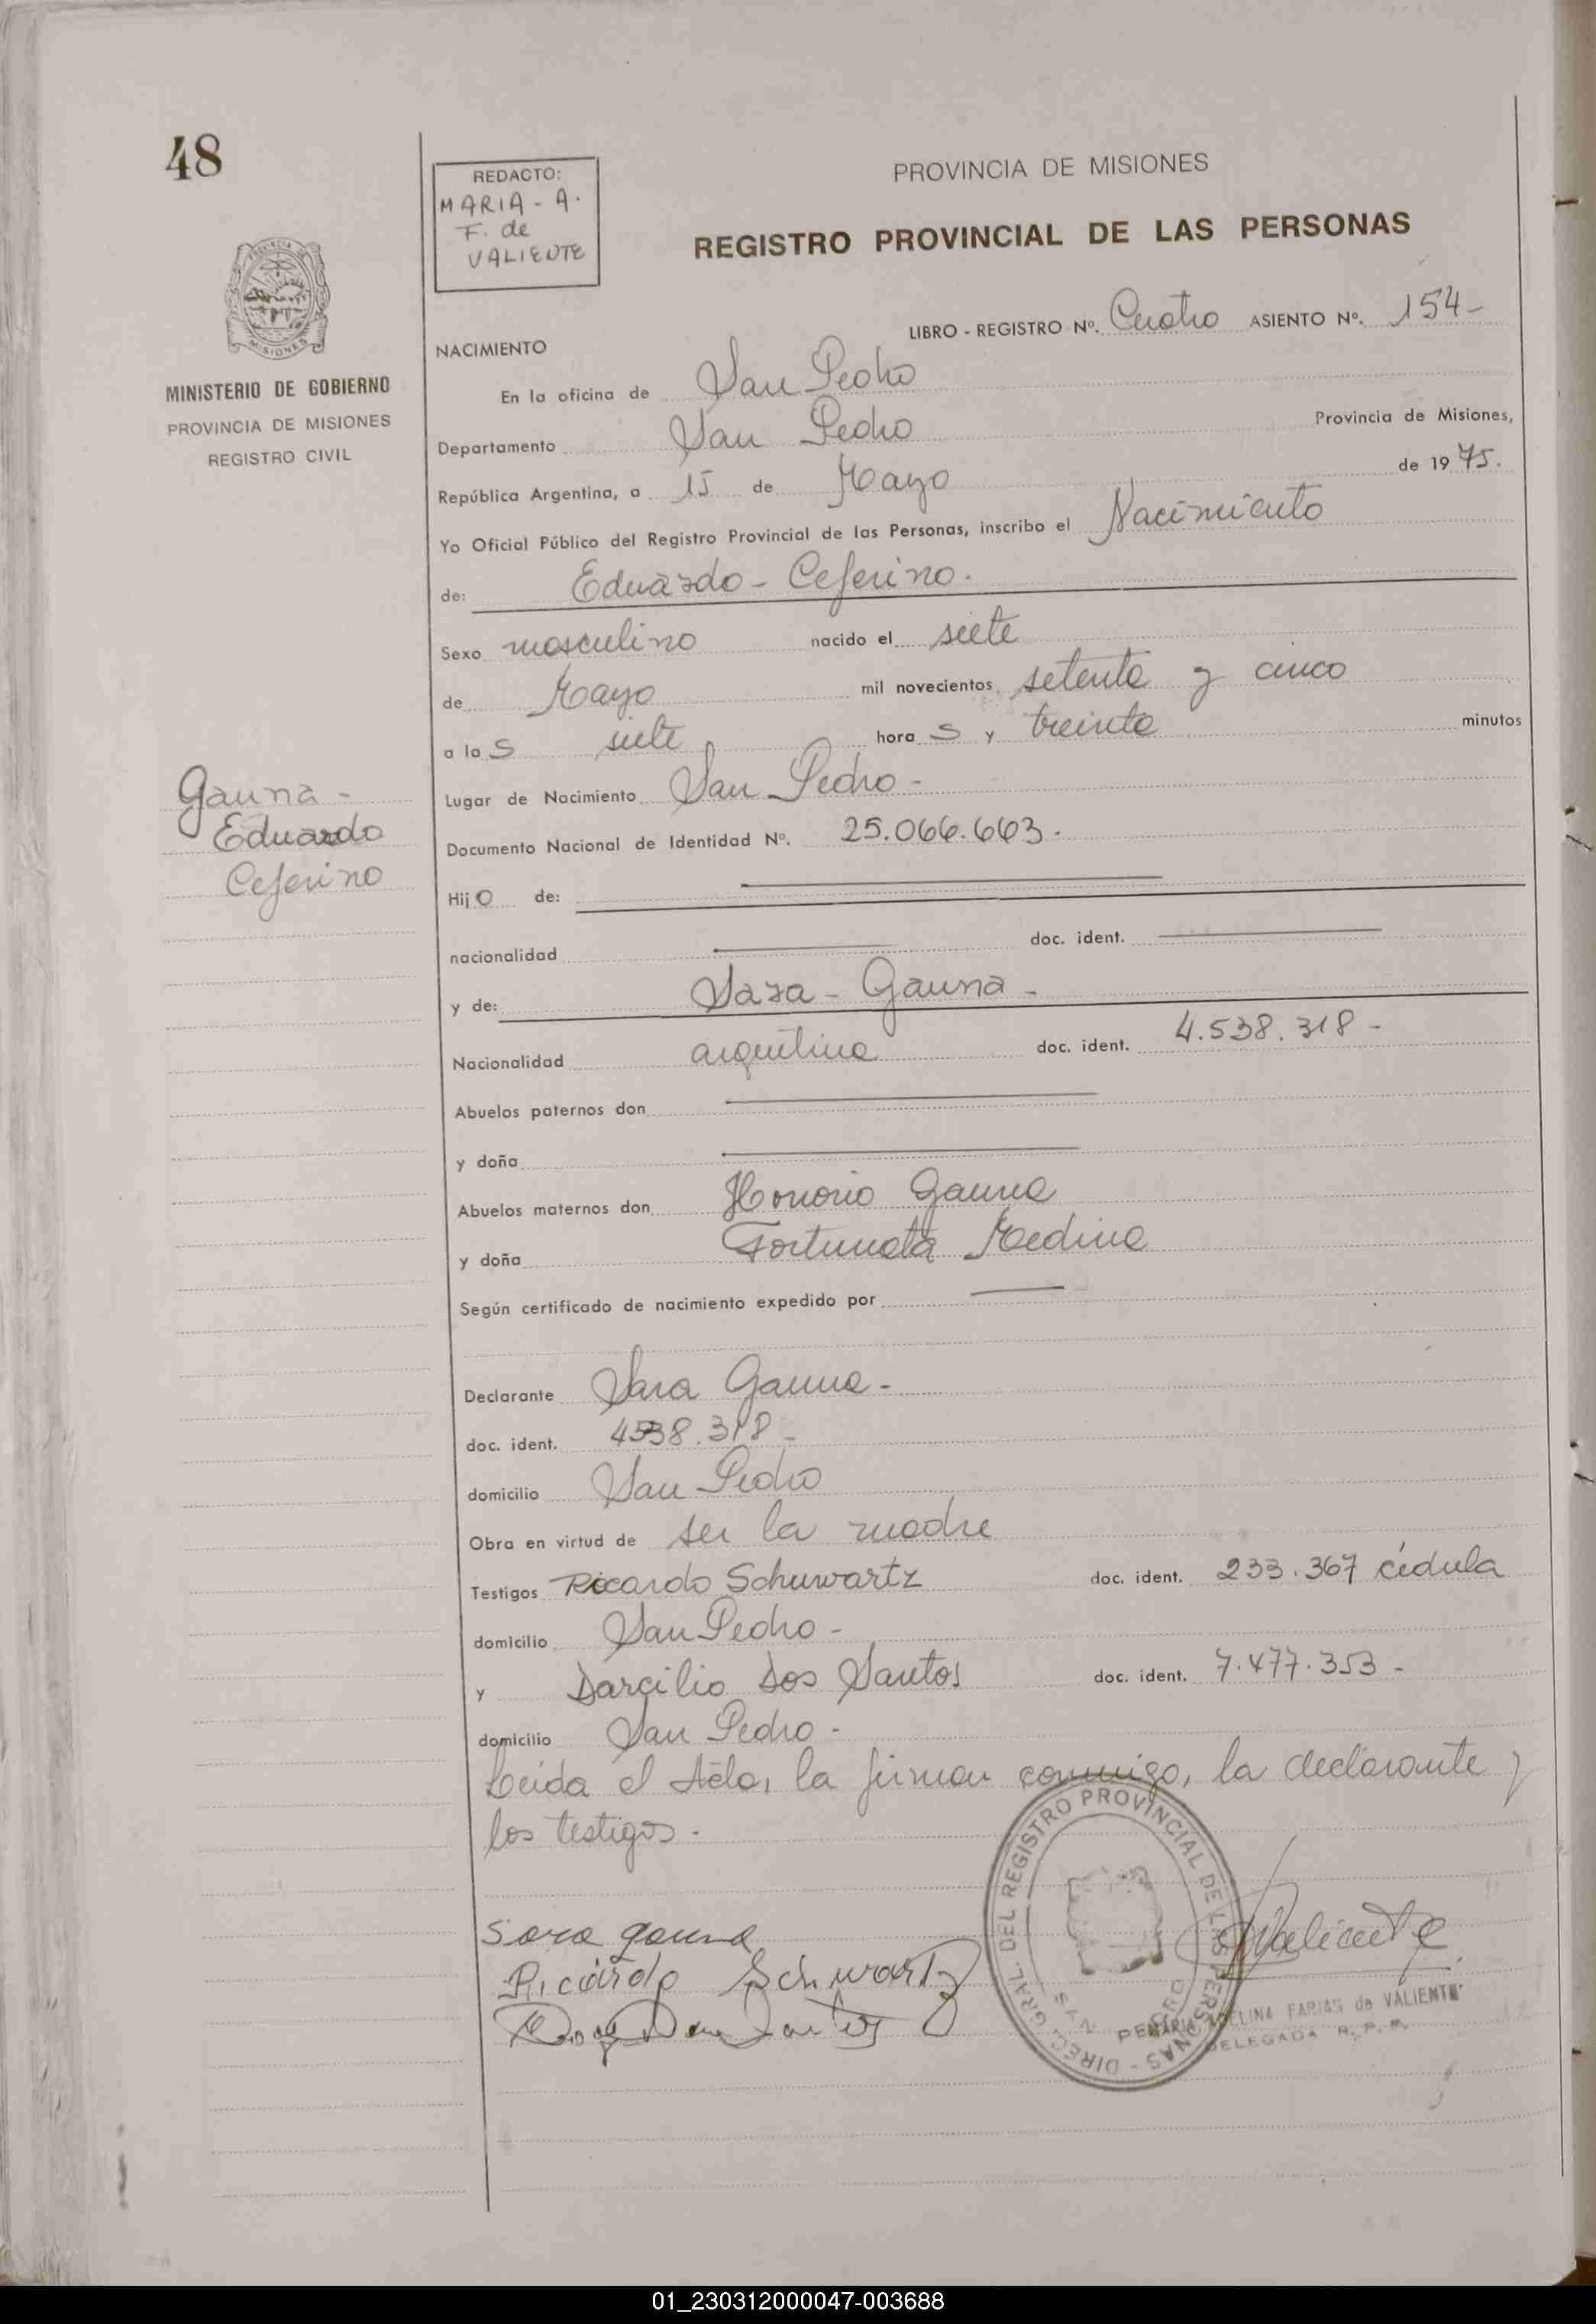 48
REDACTO:
MARIA - A.
F. de
VALIENTE
PROVINCIA DE MISIONES
REGISTRO PROVINCIAL DE LAS PERSONAS
MISIONES
MINISTERIO DE GOBIERNO
PROVINCIA DE MISIONES
REGISTRO CIVIL
LIBRO - REGISTRO Nº. Cuatro ASIENTO Nº. 154-
NACIMIENTO
En la oficina de San Pedro
Departamento San Pedro Provincia de Misiones,
República Argentina, a 15 de Mayo de 1975.
Yo Oficial Público del Registro Provincial de las Personas, inscribo el Nacimiento
de: Eduardo - Ceferino.
Sexo masculino nacido el siete
de Mayo mil novecientos setenta y cinco
a la s siete hora s y treinta minutos
Gauna -
Eduardo
Ceferino
Lugar de Nacimiento San Pedro -
Documento Nacional de Identidad Nº. 25.066.663.
Hij o de:
nacionalidad doc. ident.
y de: Sara - Gauna -
Nacionalidad argentina doc. ident. 4.538.318 -
Abuelos paternos don
y doña
Abuelos maternos don Honorio Gauna
y doña Fortunata Medina
Según certificado de nacimiento expedido por
Declarante Sara Gauna -
doc. ident. 4538.318 -
domicilio San Pedro
Obra en virtud de ser la madre
Testigos Ricardo Schuwartz doc. ident. 233.367 cédula
domicilio San Pedro -
y Darcilio Dos Santos doc. ident. 7.477.353 -
domicilio San Pedro -
Leida el Acta, la firman conmigo, la declarante y
los testigos.
DIREC. GRAL. DEL REGISTRO PROVINCIAL DE LAS PERSONAS
SAN PEDRO
Sara gauna
Ricardo Schwartz
Valiente
MARIA ADELINA FARIAS de VALIENTE
DELEGADA R. P. P.
01_230312000047-003688